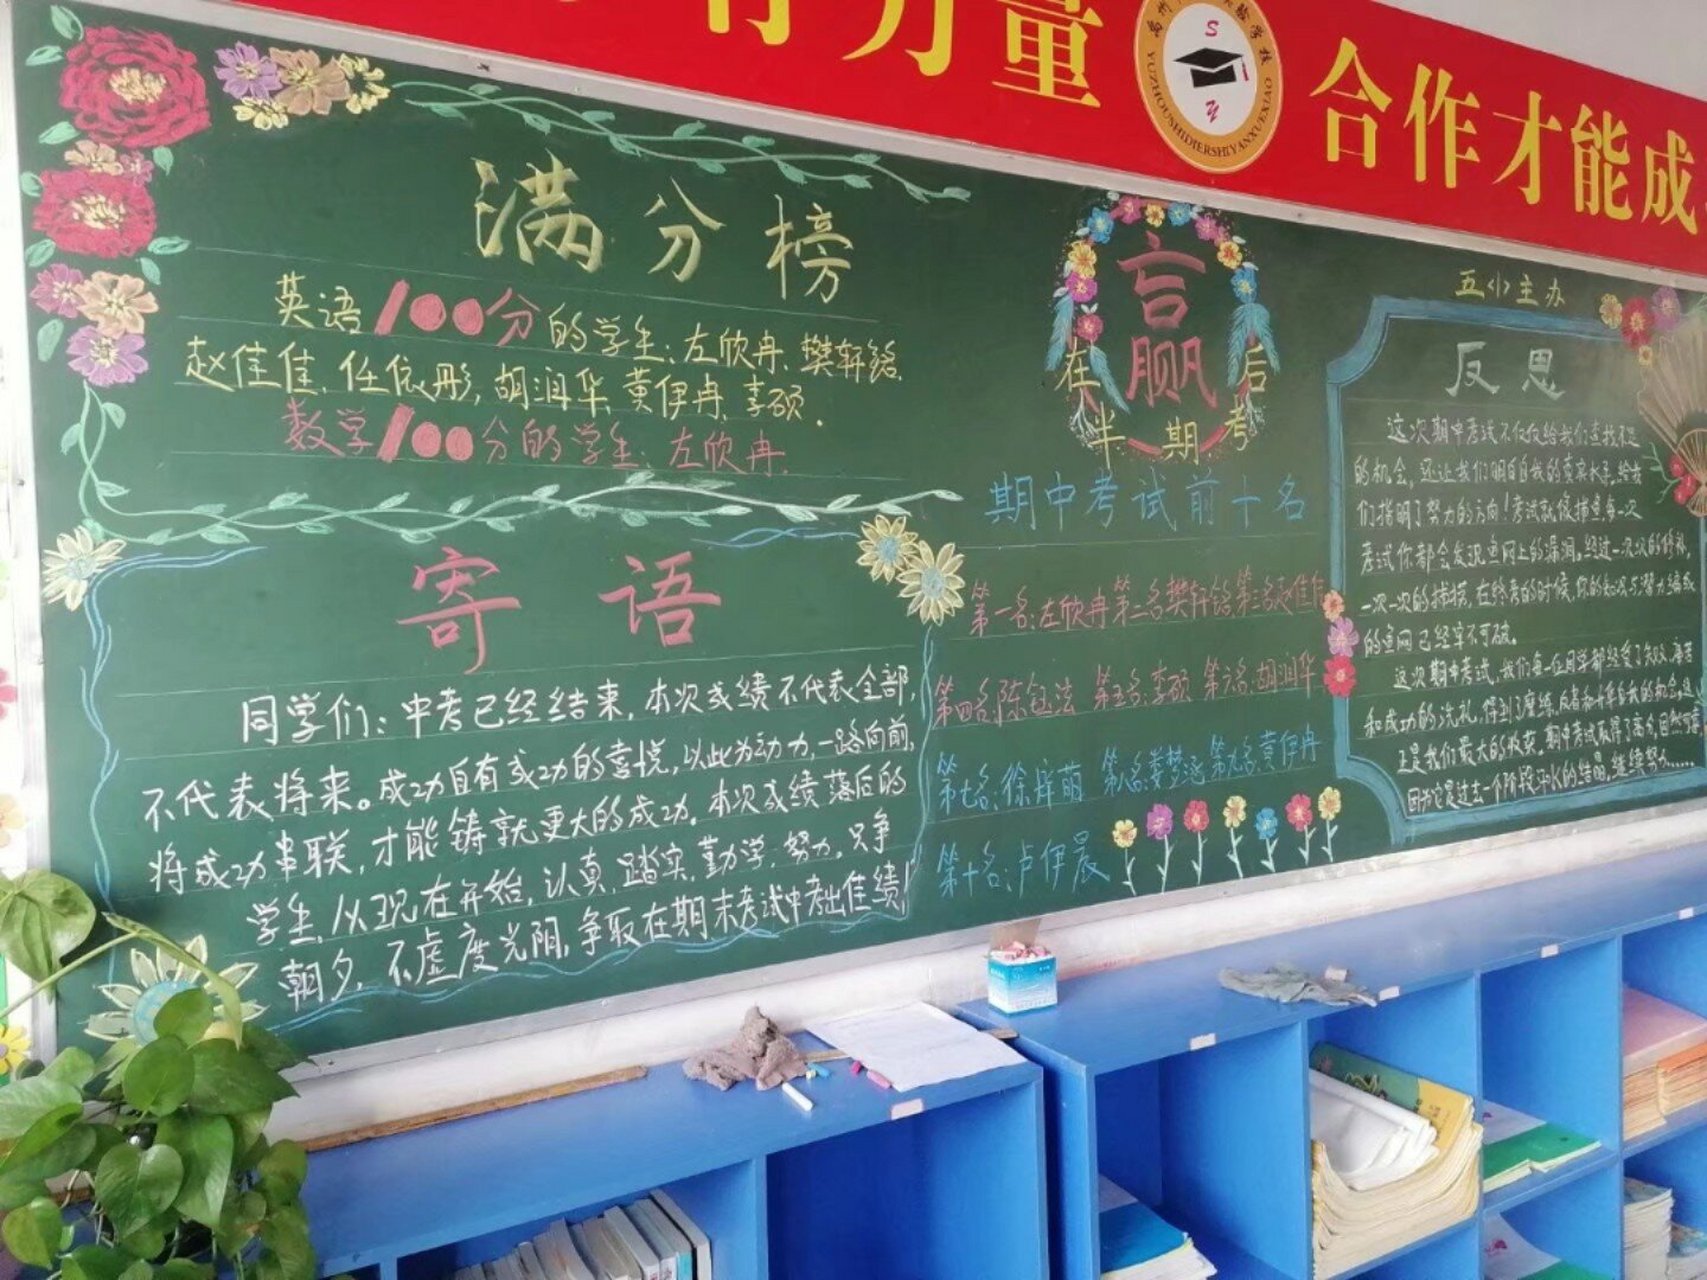 有力量
合作才能成
YUZHOUSHIDIERSHIYANXUEXIAO
满分榜
英语100分的学生:左欣冉、樊轩铭、
赵佳佳、任依彤,胡润华、黄伊冉、李硕。
数学100分的学生:左欣冉。
寄语
同学们:中考已经结束,本次成绩不代表全部,
不代表将来。成功自有成功的喜悦,以此为动力,一路向前,
将成功串联,才能铸就更大的成功。本次成绩落后的
学生,从现在开始,认真、踏实、勤学、努力,只争
朝夕,不虚度光阴,争取在期末考试中考出佳绩!
赢
在半期考后
期中考试前十名
第一名:左欣冉 第二名樊轩铭 第三名赵佳佳
第四名:陈钰法 第五名:李硕 第六名:胡润华
第七名:徐梓萌 第八名:姜梦涵 第九名:黄伊冉
第十名:卢伊晨
五(1)主办
反思
这次期中考试不仅仅给我们查找不足
的机会,还让我们明白自我的真实水平,给我
们指明了努力的方向!考试就像捕鱼,每一次
考试你都会发现鱼网上的漏洞。经过一次次的修补,
一次一次的捕捞,在终考的时候,你的知识与潜力编成
的鱼网已经牢不可破。
这次期中考试,我们每一位同学都经受了失败、痛苦
和成功的洗礼,得到了磨练、反省和升华自我的机会,这
正是我们最大的收获。期中考试取得了高分,固然可喜
因为它是过去一个阶段汗水的结晶,继续努力……